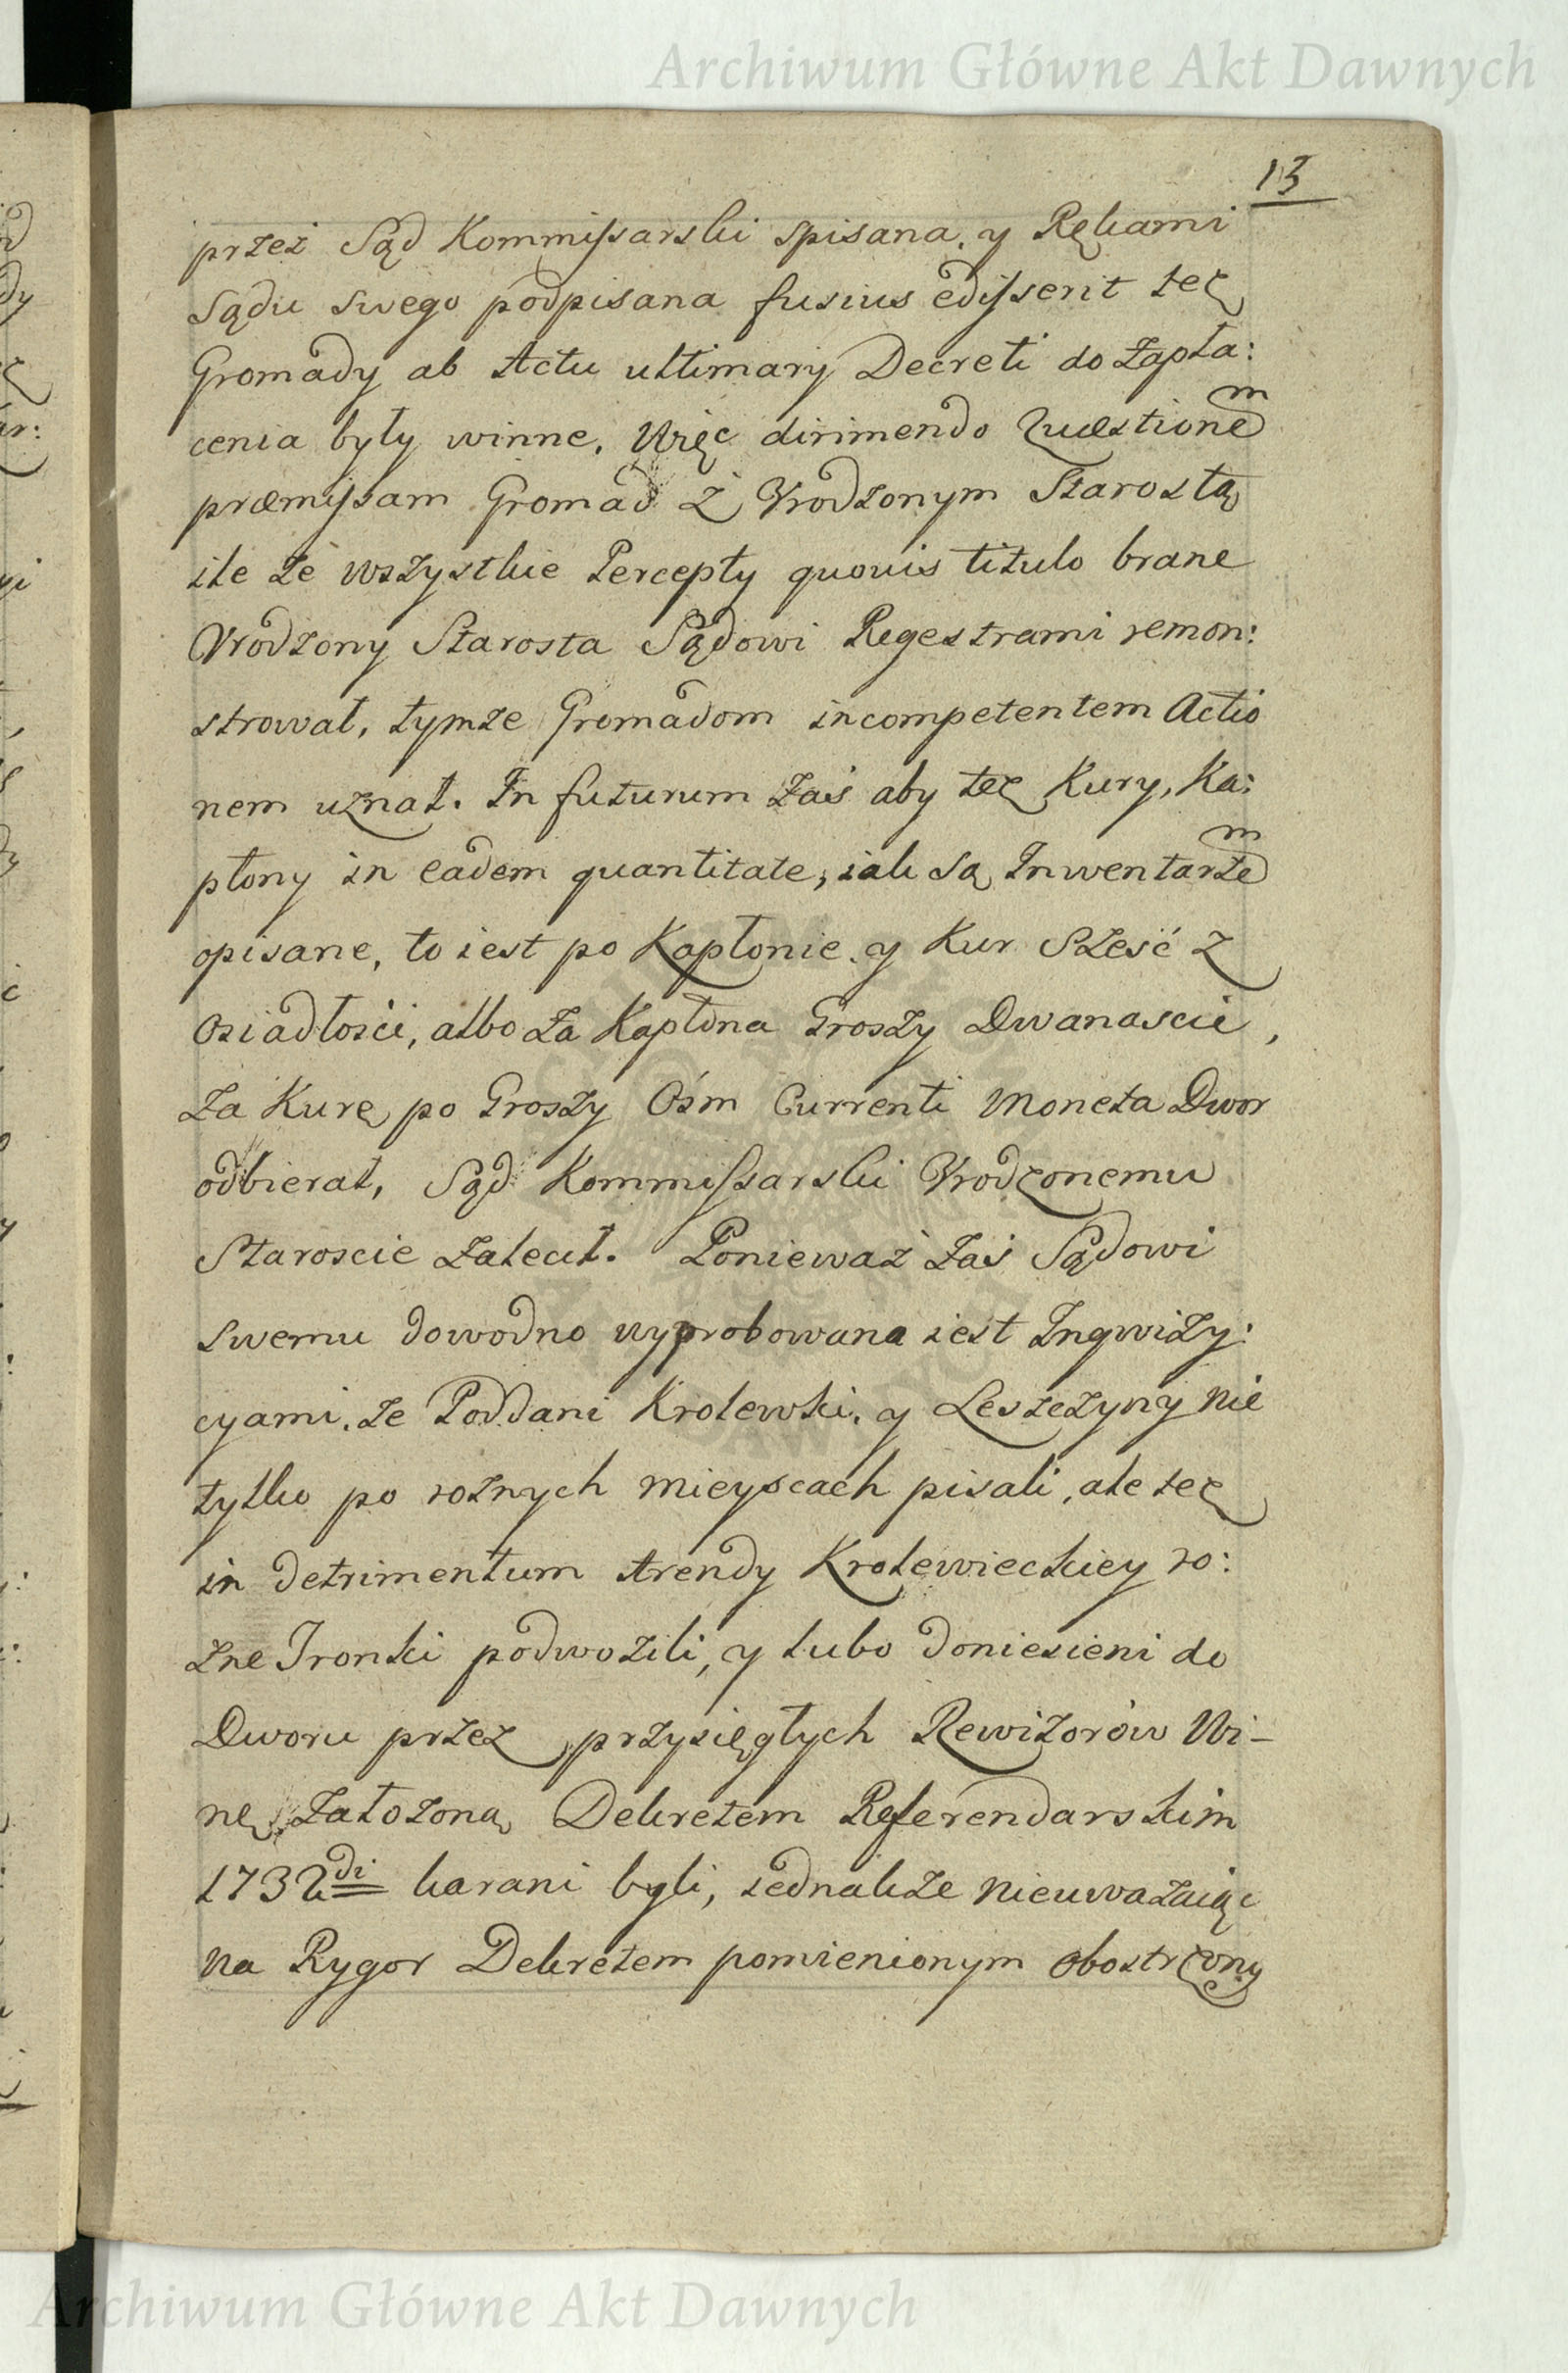 Archiwum Główne Akt Dawnych
13
przez Sąd Kommissarski spisana, y Rękami
Sądu swego podpisana fusius edisserit też
Gromady ab Actu ultimarij Decreti do zapła:
cenia były winne. Więc dirimendo Quæstionem
præmissam Gromad z Vrodzonym Starostą
ile że wszystkie Percepty quovis titulo brane
Vrodzony Starosta Sądowi Regestrami remon:
strował, tymże Gromadom incompetentem Actio
nem uznał. In futurum zaś aby też Kury, Ka:
płony in eadem quantitate, iak są Inwentarzem
opisane, to iest po Kapłonie y Kur Sześć z
Osiadłości, albo za Kapłona Groszy Dwanascie,
za Kurę po Groszy Ośm Currenti Moneta Dwor
odbierał, Sąd Kommissarski Vrodzonemu
Staroscie zalecił. Ponieważ zaś Sądowi
swemu dowodno wyprobowana iest Inqwizy:
cyami, że Poddani Krolewski, y Leszczyny nie
tylko po rożnych mieyscach pisali, ale też
in detrimentum Arendy Krolewieckiey ro:
żne Tronki podwozili, y lubo doniesieni do
Dworu przez przysięgłych Rewizorów Wi-
nę założoną Dekretem Referendarskim
1732di karani byli, iednakże nieuważaiąc
na Rygor Dekretem pomienionym obostrzony
Archiwum Główne Akt Dawnych